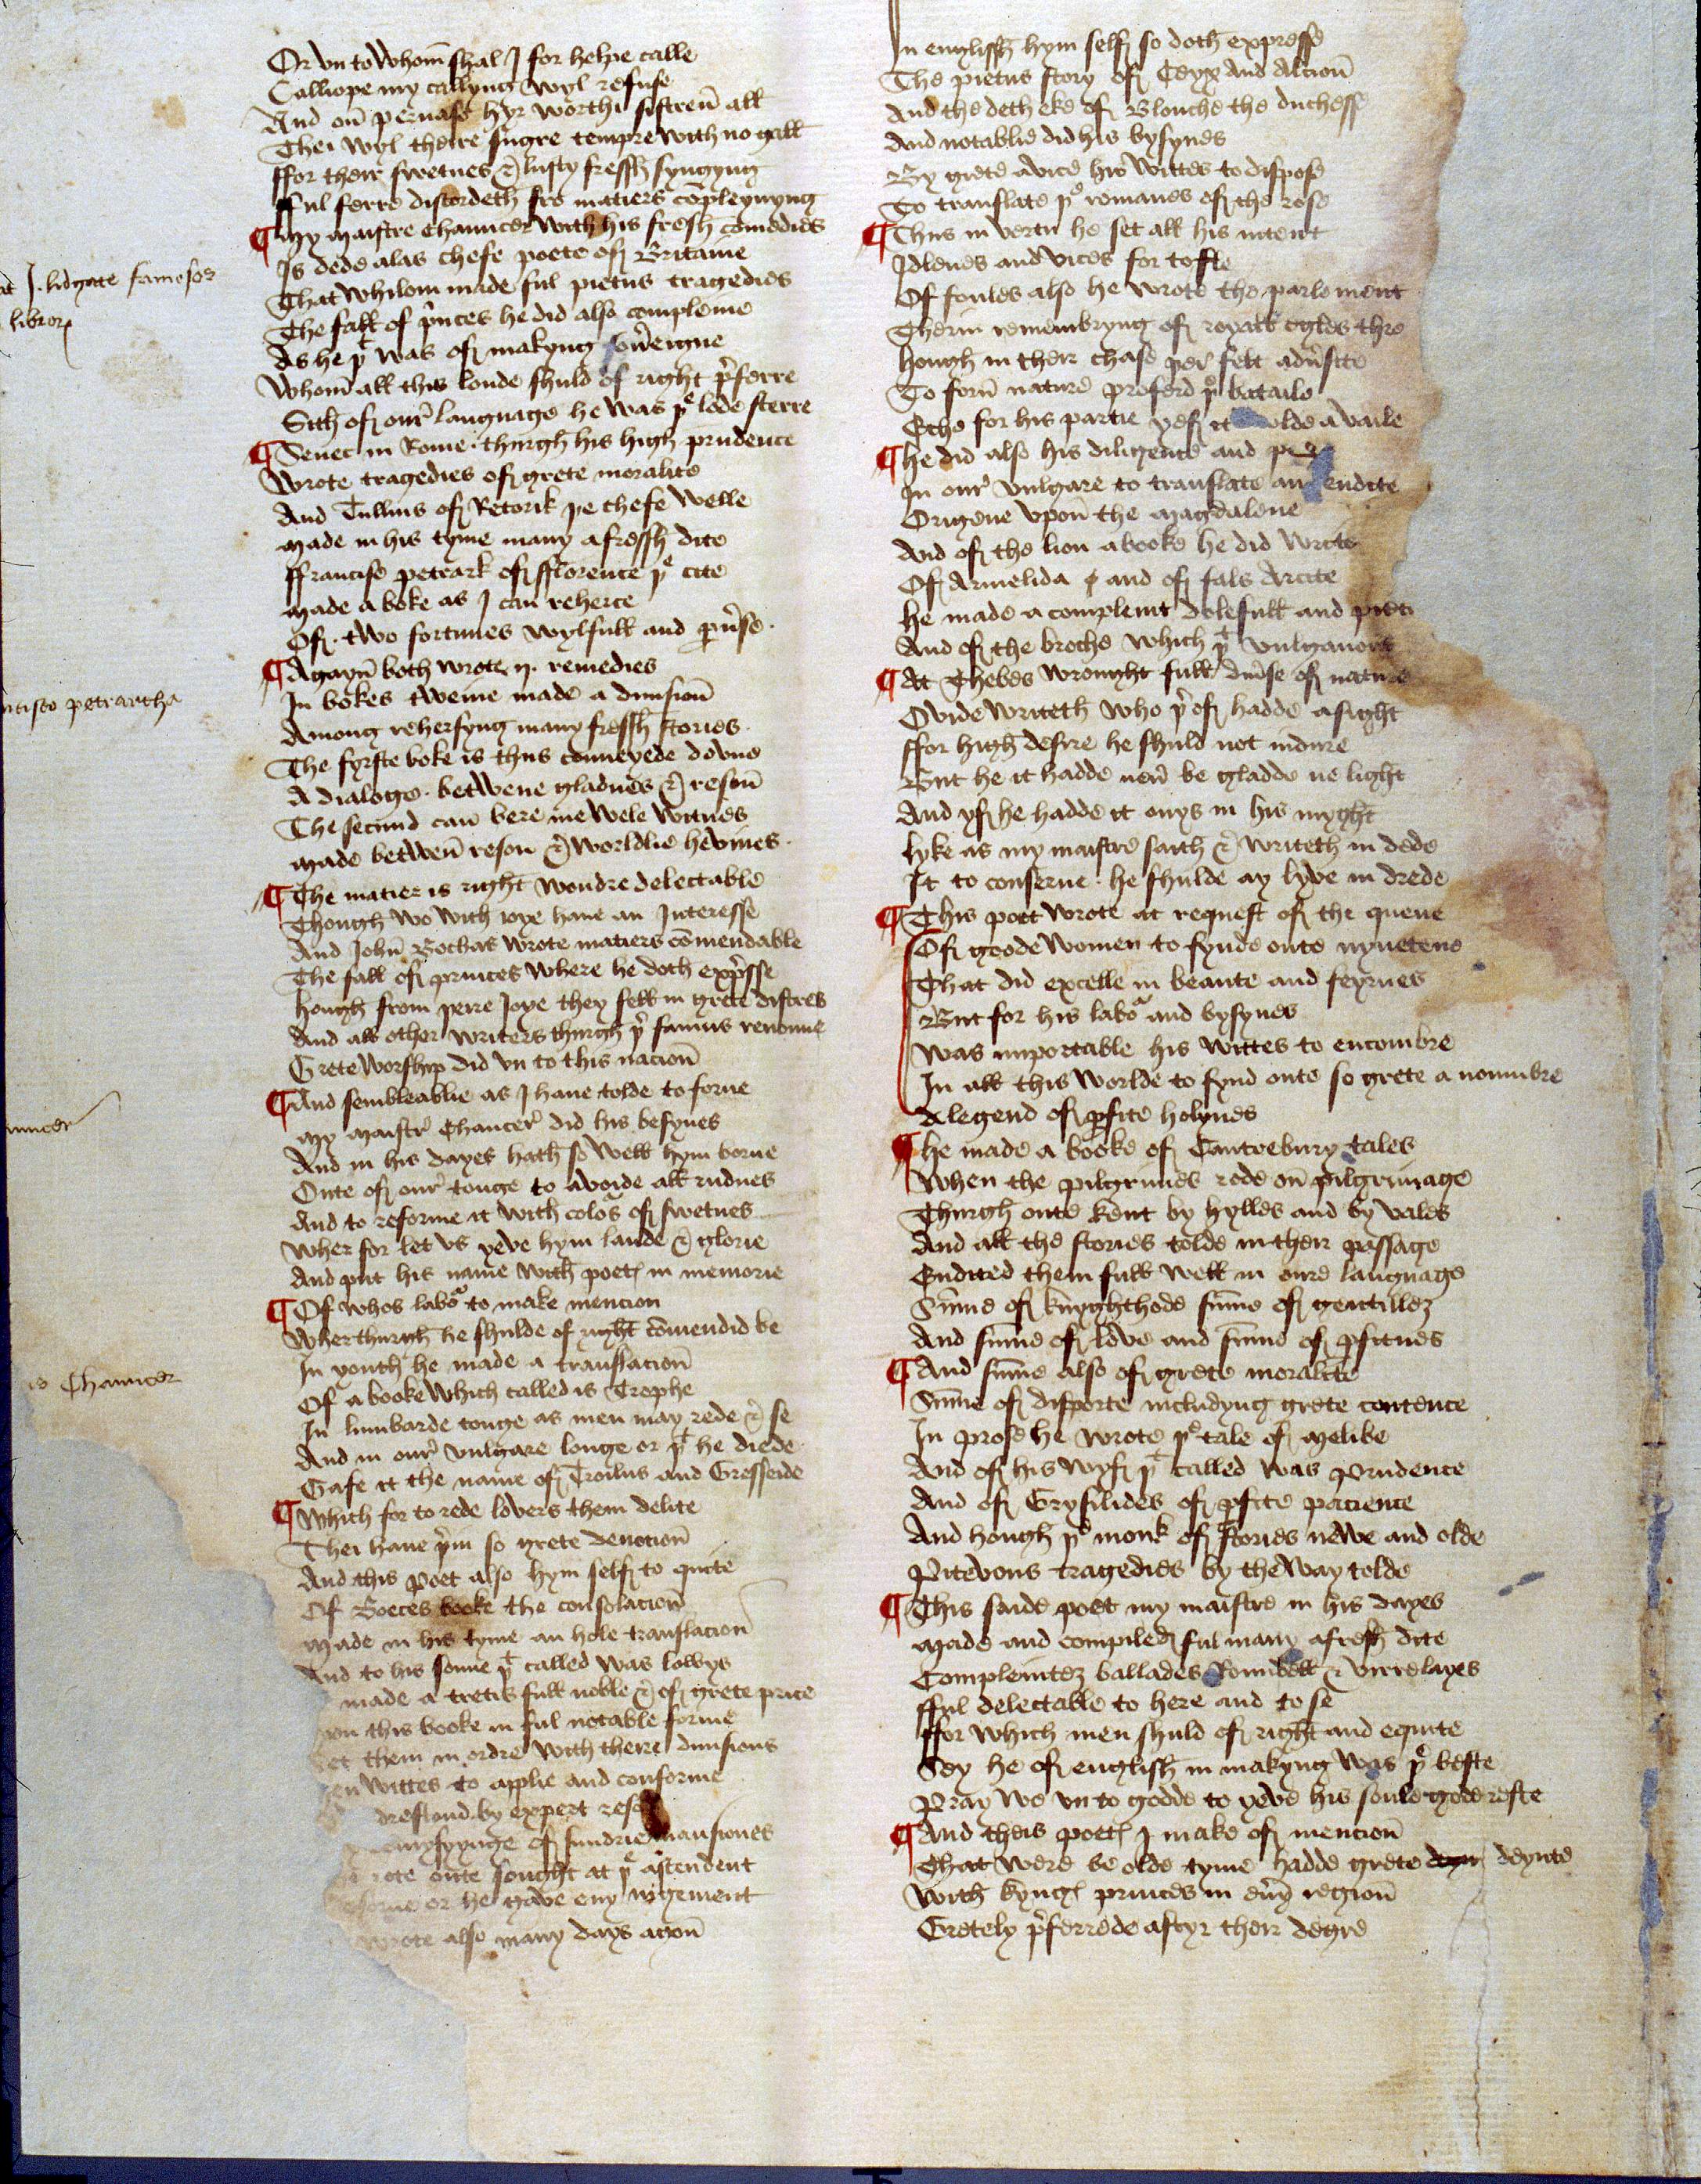 Or vn to Whom̄ shal I for helpe calle
Calliope my callyng wyl refuse
And on̄ pernaso hyr worthi sistren̄ all
Thei wyl theire sugre tempre with no gall
ffor theiр swetnes & lusty fressh syngyng
fful ferre discordeth fro matiers cōpleynyng
¶ My Maistre Chauncer with his fresh comedies
Is dede alas chefe poete of Britaine
That whilom made ful pietus tragedies
The fall of p̄nces he did also compleine
As he þͭ was of makyng sou̓eigne
Whom̄ all this londe shuld of right p̓ferre
Sith of our̓ language he was þͤ lode sterre
at J. lidgate famosos
libror̄
¶ Senec in Rome thurgh his high prudence
Wrote tragedies of grete moralite
And Tullius of Retorik þe chefe welle
Made in his tyme many a fressh dite
ffrancise petrark of fflorence þͤ cite
Made a boke as I can reherce
Of two fortunes wylfull and pu̓se
¶ Agayn̄ both wrote ij. remedies
In bokes tweine made a diuision̄
ncisco petrarcha
Among rehersyng many fressh stories
The fyrste boke is thus conueyede doune
A dialoge betwene gladnes & reson̄
The secund can bere me wele witnes
Made betwen̄ reson & worldlie hevines
¶ The matier is right wondre delectable
Though wo with ioye haue an Interesse
And John̄ Bochas wrote matiers cōmendable
The fall of princes where he doth exp̓sse
Hough from þeire Joye they fell in grete distres
And all other writers thurgh þͬ famus renoune
Grete worship did vn to this nacion̄
¶ And sembleablie as I haue tolde to forne
My maistr̓ Chaucer̓ did his besynes
And in his dayes hath so well hym borne
Oute of our̓ tonge to avoide all rudnes
And to reforme it with coloͬs of swetnes
Wher for let vs yeve hym laude & glorie
And put his name with poetꝭ in memorie
¶ Of whos laboͬ to make mencion
Wherthurgh he shulde of right cōmendid be
In youth he made a translacion̄
is Chauncer
Of a booke which called is Trophe
In lumbarde tonge as men may rede & se
And in our̓ vulgare longe or þͭ he diede
Gafe it the name of Troilus and Cresseide
¶ Which for to rede lovers them delite
Thei haue þ̓in so grete deuotion̄
And this poet also hym self to quite
Of Boeces booke the consolacion̄
Made in his tyme an hole translacion
And to his sonne þͭ called was lowys
made a tretis full noble & of grete price
on this booke in ful notable forme
et them in ordre with theire diuisions
en wittes to applie and conforme
drestand by expert reso
of sundrie mansiones
rote oute sought at þͤ ascendent
or he gave eny iugement
wrote also many days agon̄
In englissh hym self so doth expresse
The pietus story of Ceyx and Alcion̄
And the deth eke of Blanche the duchesse
And notablie did his bysynes
By grete avice his wittes to dispose
To translate þͤ romanes of the rose
¶ Thus in vertu he set all his intent
Idlenes and vices for to fle
Of foules also he wrote the parlement
Therin remembryng of royall egles thre
Hough in their chase þei felt adu̓site
To forn̄ nature proferd þͤ bataile
Eche for his partie yef it wolde availe
¶ He did also his diligence and
In our̓ vulgare to translate and endite
Origene vpon̄ the Magdalene
And of the lion a booke he did write
Of Armelida and of fals Arcite
He made a compleint dolefull and
And of the broche which þͭ vulganous
¶ At Thebes wrought full diu̓se of nature
Ovide writeth who þ̓of hadde a sight
ffor high desire he shuld not indure
But he it hadde neu̓ be gladde ne light
And yf he hadde it onys in his myght
Lyke as my maistre saith & writeth in dede
It to conserue he shulde ay lyve in drede
¶ This poet wrote at request of the quene
Of goode women to fynde oute nynetene
That did excelle in beaute and feyrnes
But for his laboͬ and bysynes
Was inportable his wittes to encombre
In all this worlde to fynd oute so grete a noumbre
A legend of p̱fite holynes
¶ He made a booke of Cantrebury tales
When the pilgrimes rode on̄ pilgrimage
Thurgh oute Kent by hylles and by vales
And all the stories tolde in their passage
Endited them full well in oure language
Su̅me of knyghthode su̅me of gentillez
And su̅me of love and su̅me of p̱fitnes
¶ And su̅me also of grete moralite
Su̅me of disporte includyng grete centence
In prose he wrote þͤ tale of Melibe
And of his wyf þͭ called was prudence
And of Grysilides of p̱fite pacience
And hough þͤ monk of stories newe and olde
Pitevous tragedies by the way tolde
¶ This saide poet my maistre in his dayes
Made and compiled ful many a fresh dite
Compleintez ballades Roundell & virrelayes
fful delectable to here and to se
ffor which men shuld of right and equite
Sey he of english in makyng was þͤ beste
Pray we vn to godde to yeve his soule gode reste
¶ And theis poetꝭ I make of mencion̄
That were be olde tyme hadde grete deynte
With kyngꝭ princes in eu̓y region̄
Gretely p̓ferrede aftyr their degre